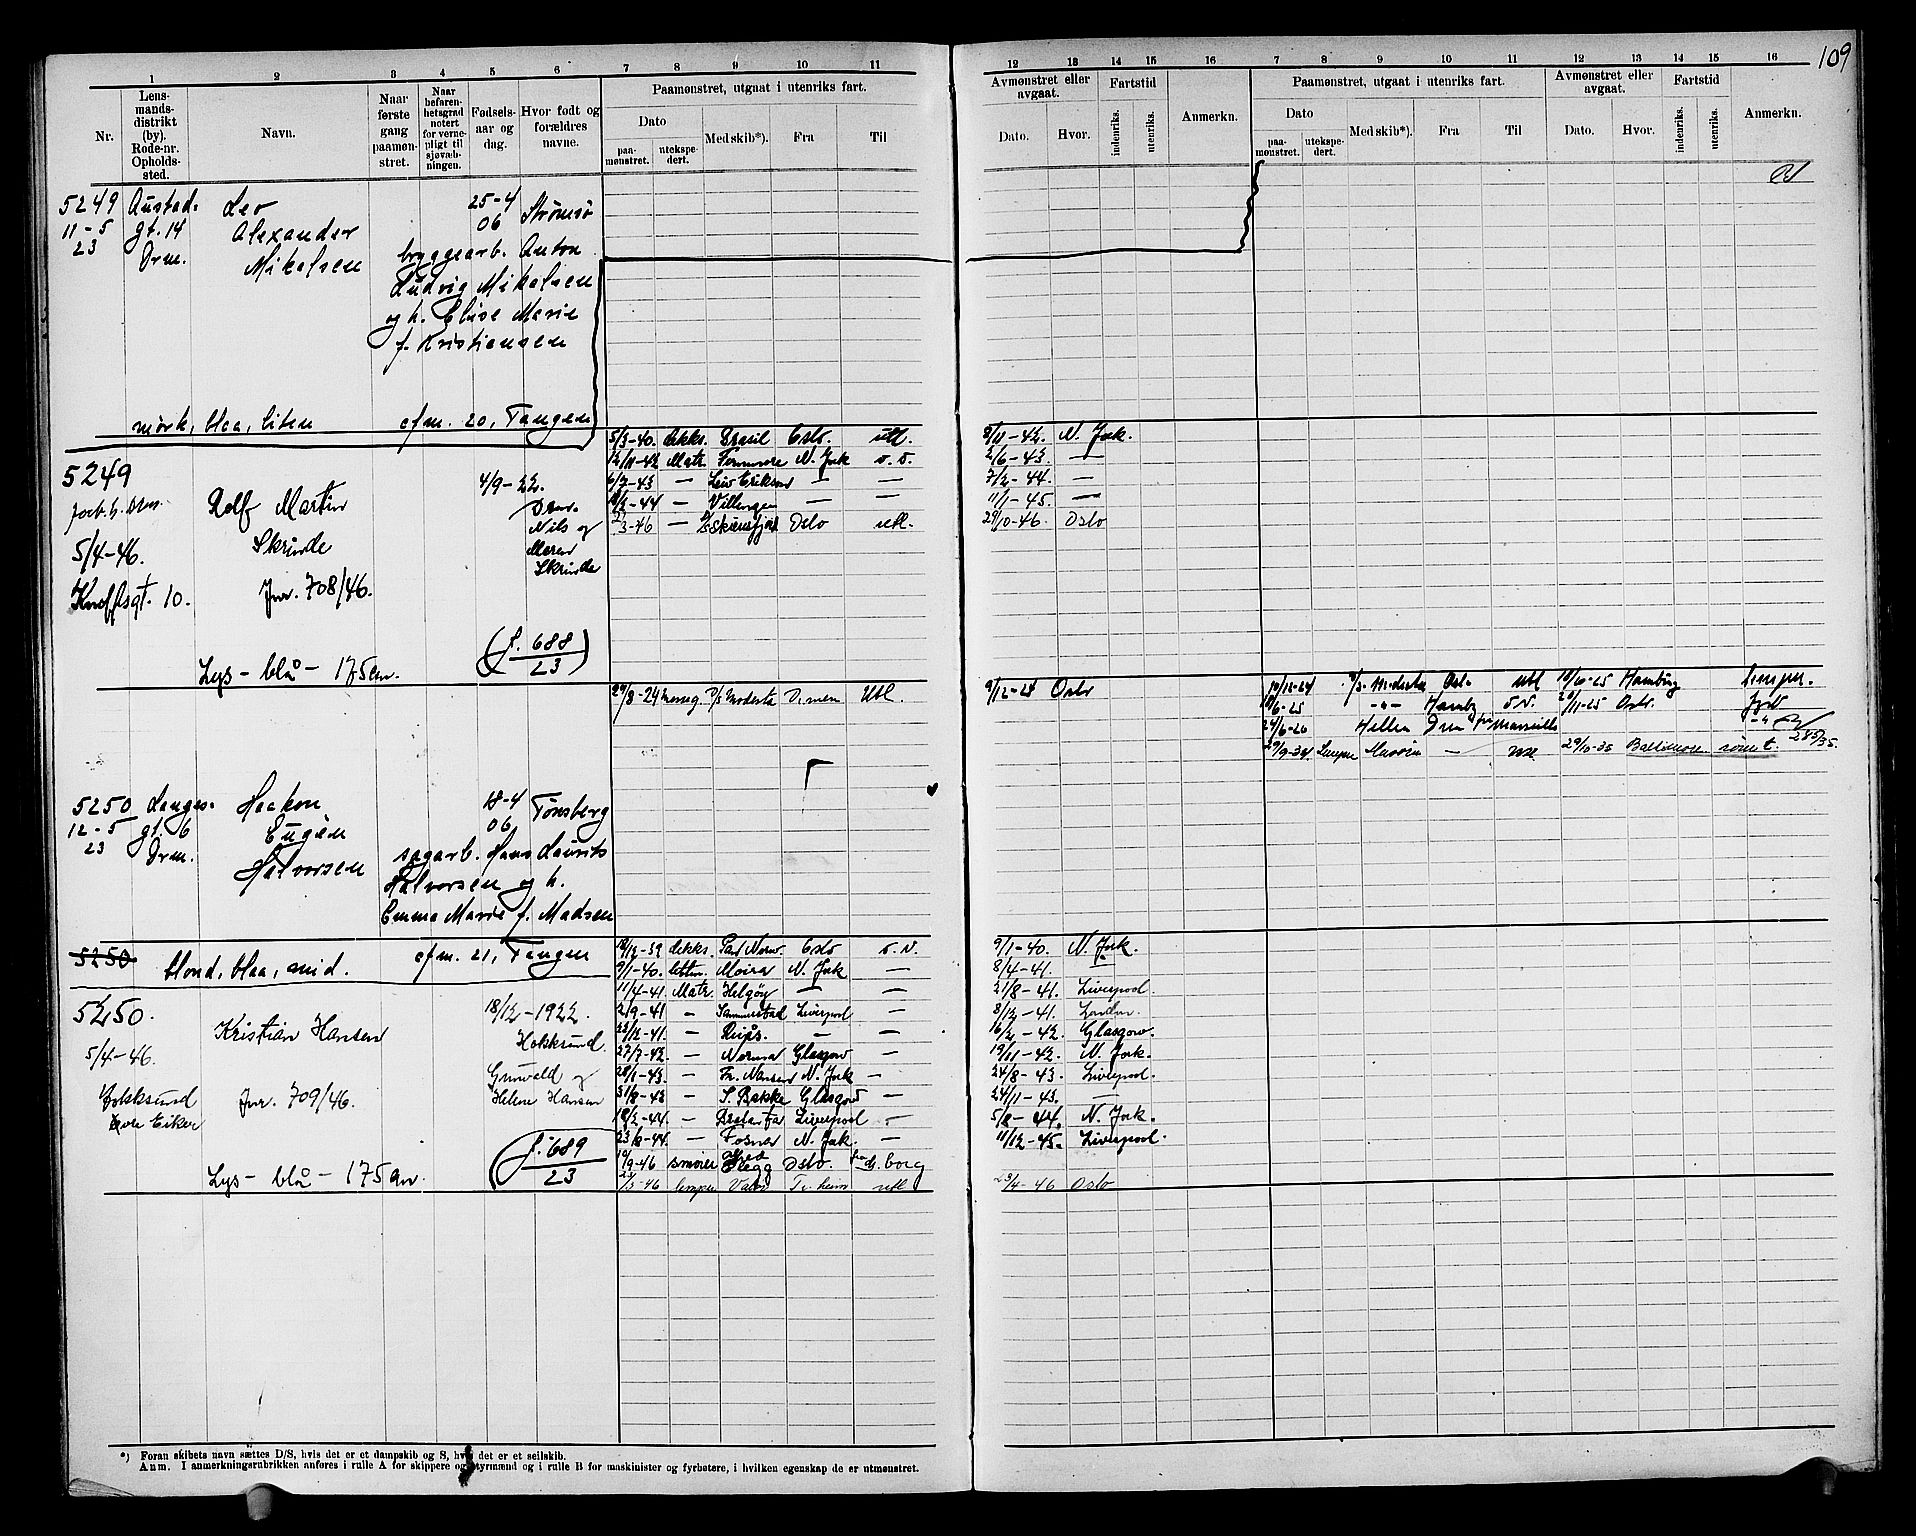 109
1 2 3 4 5 6 7 8 9 10 11
Nr.
Lensmandsdistrikt (by). Rode-nr. Opholdssted.
Navn.
Naar første gang paamønstret.
Naar befarenhetsgrad notert for vernepligt til sjøvæbningen.
Fødselsaar og dag.
Hvor født og forældres navne.
Paamønstret, utgaat i utenriks fart.
Dato
paamønstret. utekspedert.
Med skib*).
Fra
Til
5249 Austad- Leo 25-4 Strømsø
11-5 gt. 14 Alexander 06
23 Drm. Mikalsen byggearb. Anton
Ludvig Mikalsen
og h. Elise Marie
f. Kristiansen
mørk, blaa, liten cfm. 20, Tangen
5249
5/4-46.
Rolf Martin
Skrinde
Jnr. 708/46.
4/9-22.
Drm.
Nils og
Maren
Skrinde
(f. 688/23)
Lys - blå - 175 cm.
5/3-40. dekks. Brasil Oslo. utl.
12/11-42 Matr. Fernmore N. York o. v.
6/7-43 — Leiv Erikson — —
— Villanger — —
Oslo utl.
29/8-24 D/S Modesta Drmen Utl.
5250 Langes- Haakon 18-4 Tønsberg
12-5 gt. 6 Eugèn 06
23 Drm. Halvorsen sagarb. Hans Laurits
Halvorsen og h.
Emma Marie f. Madsen
5250 blond, blaa, mid. cfm. 21, Tangen
5250.
5/4-46.
Hokksund
Øvre Eiker
Kristian Hansen
Jnr. 709/46.
18/12-1922.
Hokksund.
Grunvald og
Helene Hansen
(f. 689/23)
Lys - blå - 175 cm.
18/12-39 dekks. Oslo o. v.
9/1-40. Moira N. York —
11/4-41. Matr. Helgøy — —
2/9-41 — Sammenstad Liverpool —
— — —
27/7-42. — Norma Glasgow —
28/1-43. — Fr. Nansen N. York —
31/8-43 — S. Bakke Glasgow —
18/2-44. — Liverpool -
23/8-44. — Fosna N. York. —
19/9-46 Oslo. borg
lemper Tr.heim utl
12 13 14 15 16 7 8 9 10 11 12 13 14 15 16
Avmønstret eller avgaat.
Dato. Hvor.
Fartstid
indenriks. utenriks.
Anmerkn.
Paamønstret, utgaat i utenriks fart.
Dato
paamønstret. utekspedert.
Med skib*). Fra Til
Avmønstret eller avgaat.
Dato. Hvor.
Fartstid
indenriks. utenriks.
Anmerkn.
9/11-42. N. York.
2/6-43. —
7/2-44. —
11/1-45. —
29/10-46. Oslo
9/12-24 Oslo
10/12-24 D/S Modesta Oslo Utl 10/6-25 Hamburg lemper.
18/6-25 -"- Hambg o. v. 20/11-25 Oslo. fyrb
24/6-26 Hellen Drm Marseille -"-
29/9-34 Lemper — utl 29/10-35 Baltimore rømt. 285/35.
9/1-40. N. York.
8/4-41. —
21/8-41. Liverpool.
8/12-41. London.
16/2-42. Glasgow.
19/11-42. N. York.
24/8-43. Liverpool.
24/11-43. —
5/8-44. N. York.
11/12-45. Liverpool.
23/4-46 Oslo
*) Foran skibets navn sættes D/S, hvis det er et dampskib og S, hvis det er et seilskib.
Anm. I anmerkningsrubrikken anføres i rulle A for skippere og styrmænd og i rulle B for maskinister og fyrbøtere, i hvilken egenskap de er utmønstret.